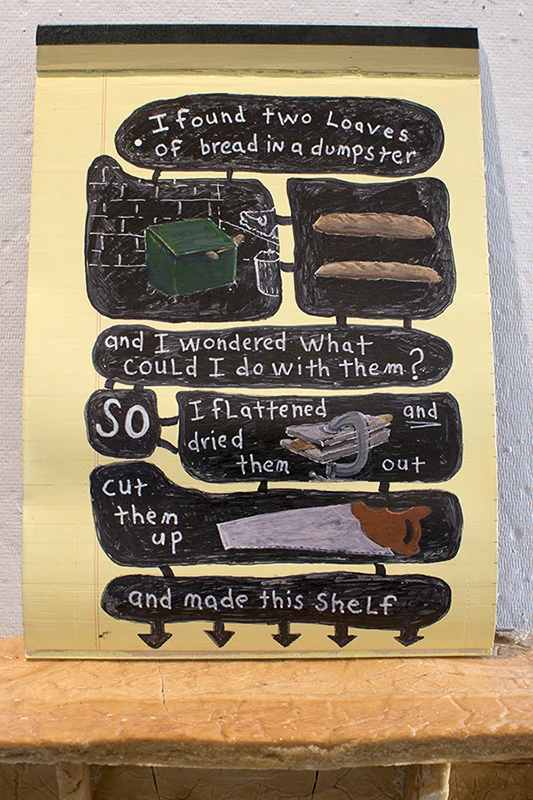 I found two Loaves
of bread in a dumpster
and I wondered what
could I do with them?
SO
I flattened and
dried
them out
cut
them
up
and made this Shelf